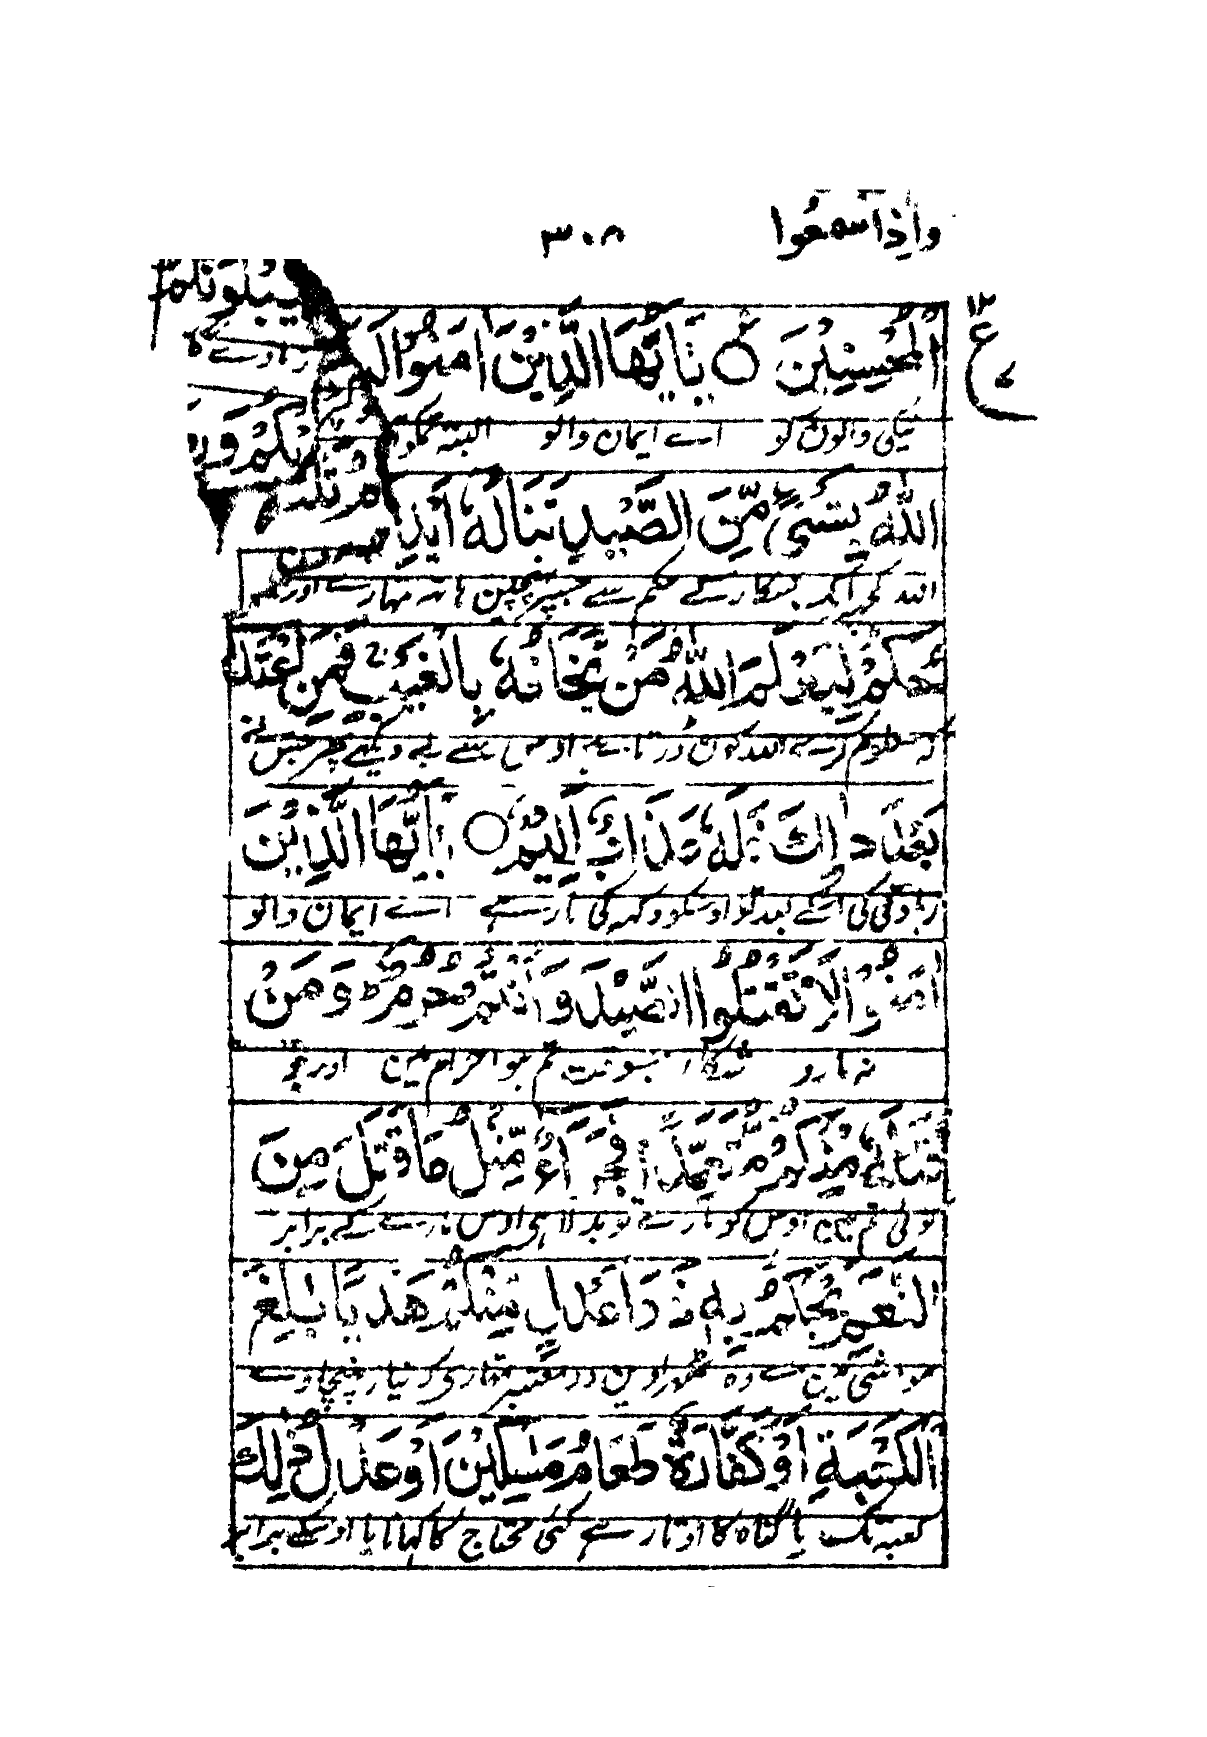 واذا سمعوا ۳۰۸
الْمُحْسِنِيْنَ ○ يٰۤاَيُّهَا الَّذِيْنَ اٰمَنُوْا لَيَبْلُوَنَّكُمُ
نیکی والوں کو اے ایمان والو البتہ تمکو
اللّٰهُ بِشَيْءٍ مِّنَ الصَّيْدِ تَنَالُهٗۤ اَيْدِيْكُمْ وَرِمَاحُكُمْ
اللہ کچھ ایک شکار کے حکم سے جسپر پہنچیں ہاتھ تمہارے اور
لِيَعْلَمَ اللّٰهُ مَنْ يَّخَافُهٗ بِالْغَيْبِ فَمَنِ اعْتَدٰى
کہ معلوم کرے اللہ کون ڈرتا ہے اوس سے بے دیکھے پھر جس نے
بَعْدَ ذٰلِكَ فَلَهٗ عَذَابٌ اَلِيْمٌ ○ يٰۤاَيُّهَا الَّذِيْنَ
زیادتی کی اسکے بعد تو اوسکو دکھ کی مار ہے اے ایمان والو
اٰمَنُوْا لَا تَقْتُلُوا الصَّيْدَ وَاَنْتُمْ حُرُمٌ ط وَمَنْ
نہ مارو شکار جسوقت تم ہو احرام میں اور جو
قَتَلَهٗ مِنْكُمْ مُّتَعَمِّدًا فَجَزَآءٌ مِّثْلُ مَا قَتَلَ مِنَ
کوئی تم میں اوس کو مارے تو بدلا ہی اوس مارے کے برابر
النَّعَمِ يَحْكُمُ بِهٖ ذَوَا عَدْلٍ مِّنْكُمْ هَدْيًاۢ بٰلِغَ
مواشی میں سے وہ ٹھہراویں دو معتبر تمہاری کہ نیاز پہنچاوے
الْكَعْبَةِ اَوْ كَفَّارَةٌ طَعَامُ مَسٰكِيْنَ اَوْ عَدْلُ ذٰلِكَ
کعبہ تک یا گناہ کا اوتار ہے کئی محتاج کا کھانا یا اوسکے برابر
ع